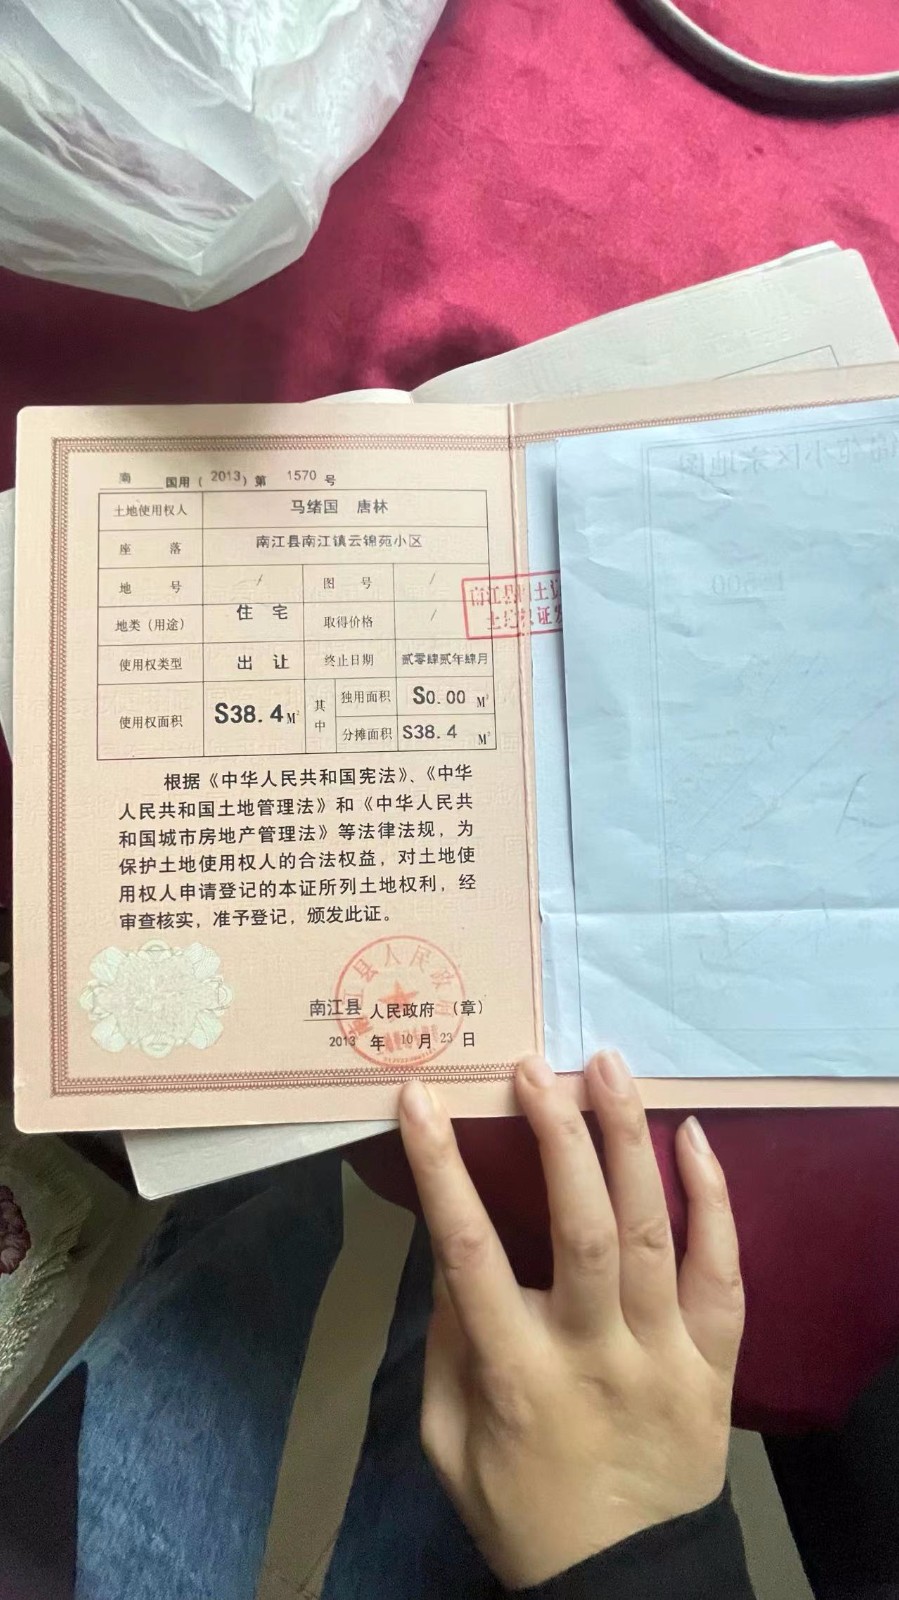 南 国用（2013）第 1570 号
土地使用权人 马绪国 唐林
座 落 南江县南江镇云锦苑小区
地 号 / 图 号 /
地类（用途） 住 宅 取得价格 /
使用权类型 出 让 终止日期 贰零肆贰年肆月
使用权面积 S38.4 M² 其中 独用面积 S0.00 M²
分摊面积 S38.4 M²
根据《中华人民共和国宪法》、《中华
人民共和国土地管理法》和《中华人民共
和国城市房地产管理法》等法律法规，为
保护土地使用权人的合法权益，对土地使
用权人申请登记的本证所列土地权利，经
审查核实，准予登记，颁发此证。
南江县 人民政府 （章）
2013 年 10 月 23 日
南江县人民政府
南江县国土资
土 证
小区宗地图